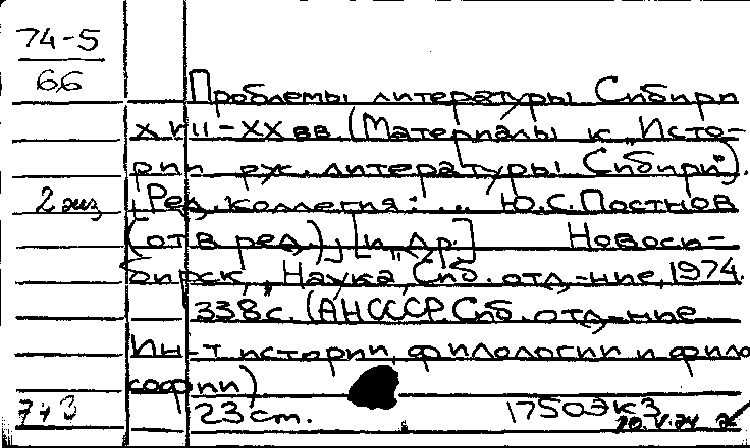 74-5
66
Проблемы литературы Сибири
XVIII-XX вв. (Материалы к „Исто-
рии рус. литературы Сибири").
2 экз
[Ред. коллегия: ... Ю.С. Постнов
(отв ред.), [и др.] Новоси-
бирск, „Наука, Сиб. отд-ние, 1974.
338 с. (АН СССР. Сиб. отд-ние
Ин-т истории, филологии и фило
софии)
23 см. 1750 экз